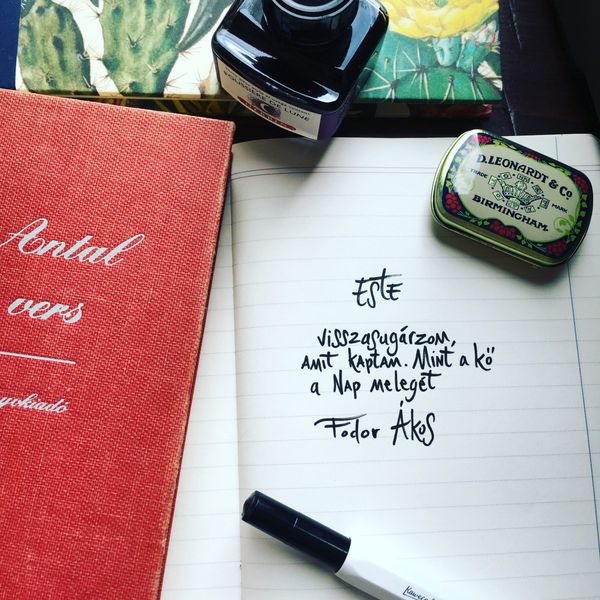 POUSSIÈRE DE LUNE
D. LEONARDT & CO.
TRADE MARK
BIRMINGHAM.
Antal
vers
yokiadó
ESTE
visszasugárzom,
amit kaptam. Mint a kő
a Nap melegét
Fodor Ákos
Kaweco